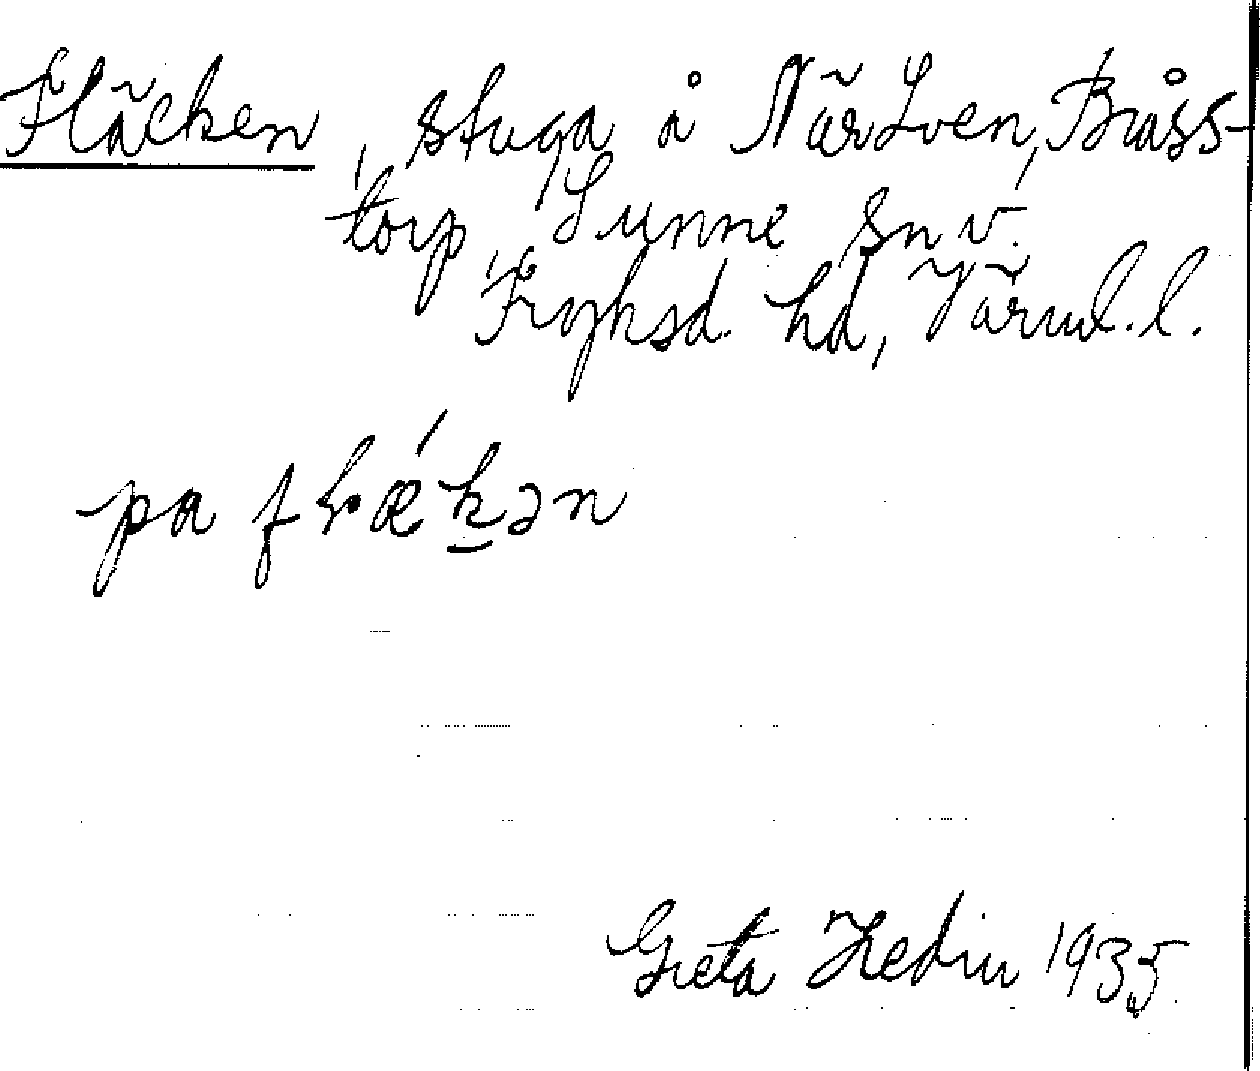 Fläcken, stuga å När Lven, Bråss-
torp, Sunne sn v.
Fryksd. hd, Värml. l.
pa
Greta Hedin 1935.